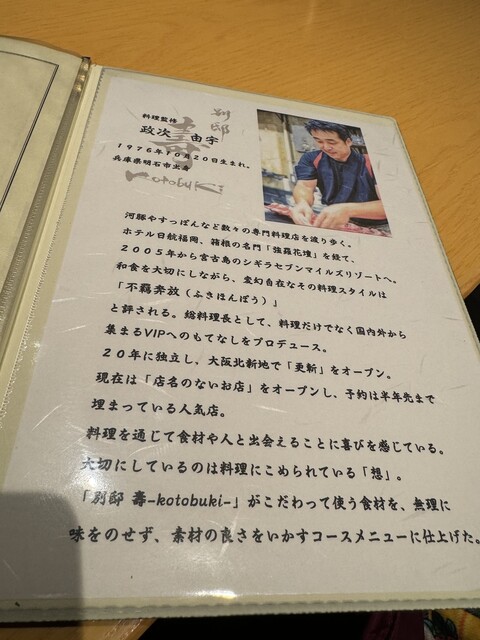 別邸
壽
kotobuki
料理監修
政次 由宇
1976年10月20日生まれ。
兵庫県明石市出身
河豚やすっぽんなど数々の専門料理店を渡り歩く。
ホテル日航福岡、箱根の名門「強羅花壇」を経て、
2005年から宮古島のシギラセブンマイルズリゾートへ。
和食を大切にしながら、変幻自在なその料理スタイルは
「不羈奔放（ふきほんぽう）」
と評される。総料理長として、料理だけでなく国内外から
集まるVIPへのもてなしをプロデュース。
20年に独立し、大阪北新地で「更新」をオープン。
現在は「店名のないお店」をオープンし、予約は半年先まで
埋まっている人気店。
料理を通じて食材や人と出会えることに喜びを感じている。
大切にしているのは料理にこめられている「想」。
「別邸 壽-kotobuki-」がこだわって使う食材を、無理に
味をのせず、素材の良さをいかすコースメニューに仕上げた。